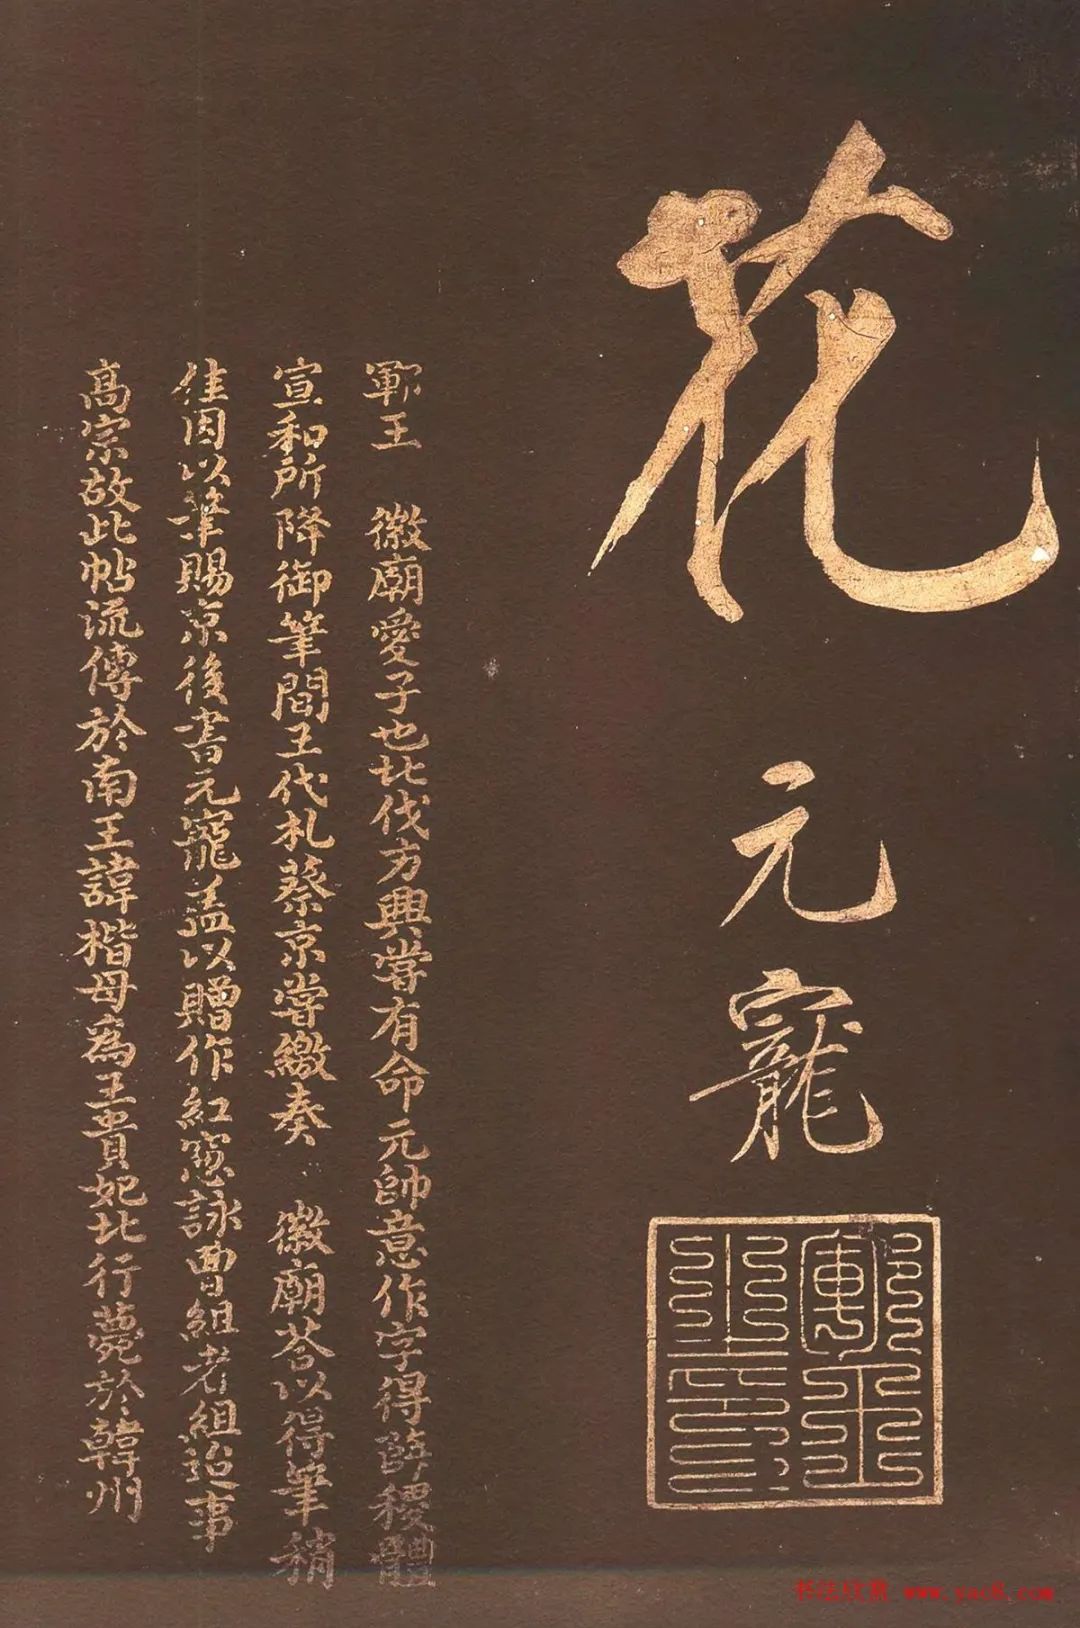 花
元寵
鄆王之印
鄆王 徽廟愛子也北伐方興嘗有命元帥意作字得薛稷體
宣和所降御筆間王代札蔡京嘗繳奏 徽廟荅以得筆稍
佳因以筆賜京後書元寵盖以贈作紅窓詠曹組者組迨事
高宗故此帖流傳於南王諱楷母爲王貴妃北行薨於韓州
书法欣赏 www.yac8.com